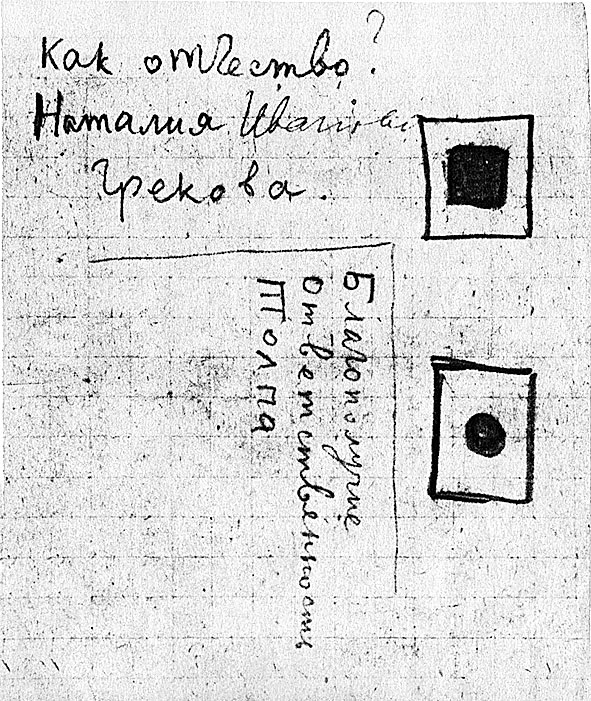 Как отчество?
Наталия Ивановна
Грекова.
Благополучие
Ответственность
Толпа